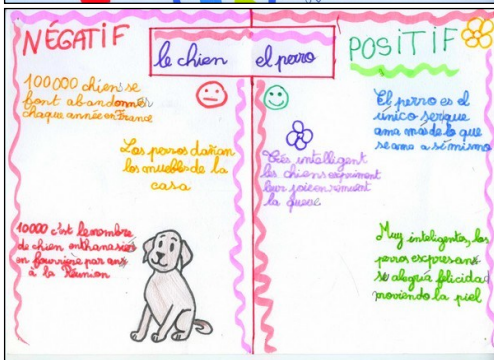 NÉGATIF
le chien el perro
POSITIF
100 000 chien se
font abandonner
chaque année en France
Los perros dañan
los muebles de la
casa
10000 c'est le nombre
de chien enthanasiés
en fourrière par ans
à la Réunion
El perro es el
único ser que
ama más de lo que
se ama a si mismo
très intelligent
les chiens expriment
leur joie en remuent
la queue
Muy inteligentes, los
perros expresan s
u alegria felicidad
moviendo la piel